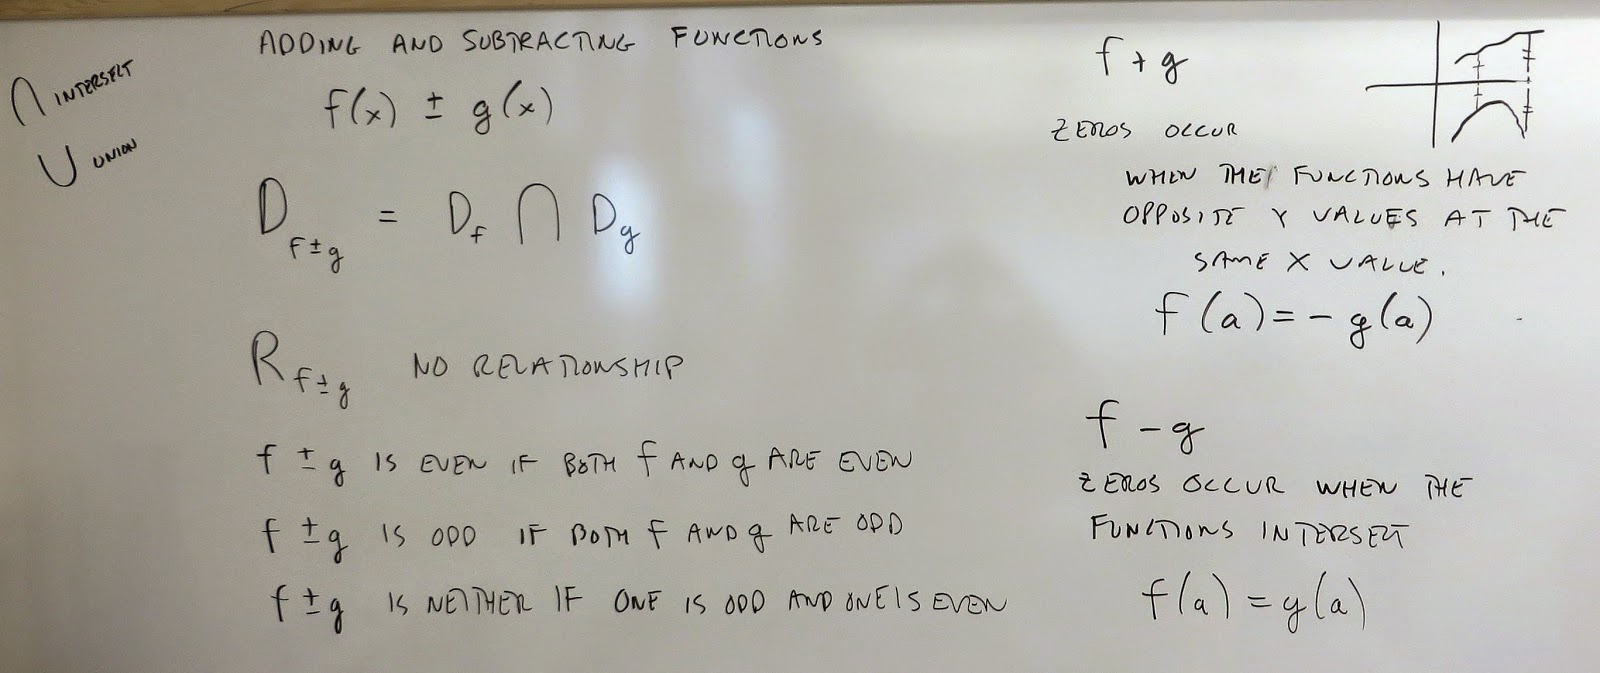 ∩ INTERSECT
∪ UNION
ADDING AND SUBTRACTING FUNCTIONS
f(x) ± g(x)
D f±g = D f ∩ D g
R f±g NO RELATIONSHIP
f ± g IS EVEN IF BOTH f AND g ARE EVEN
f ± g IS ODD IF BOTH f AND g ARE ODD
f ± g IS NEITHER IF ONE IS ODD AND ONE IS EVEN
f + g
ZEROS OCCUR
WHEN THE FUNCTIONS HAVE
OPPOSITE Y VALUES AT THE
SAME X VALUE.
f(a) = - g(a)
f - g
ZEROS OCCUR WHEN THE
FUNCTIONS INTERSECT
f(a) = g(a)